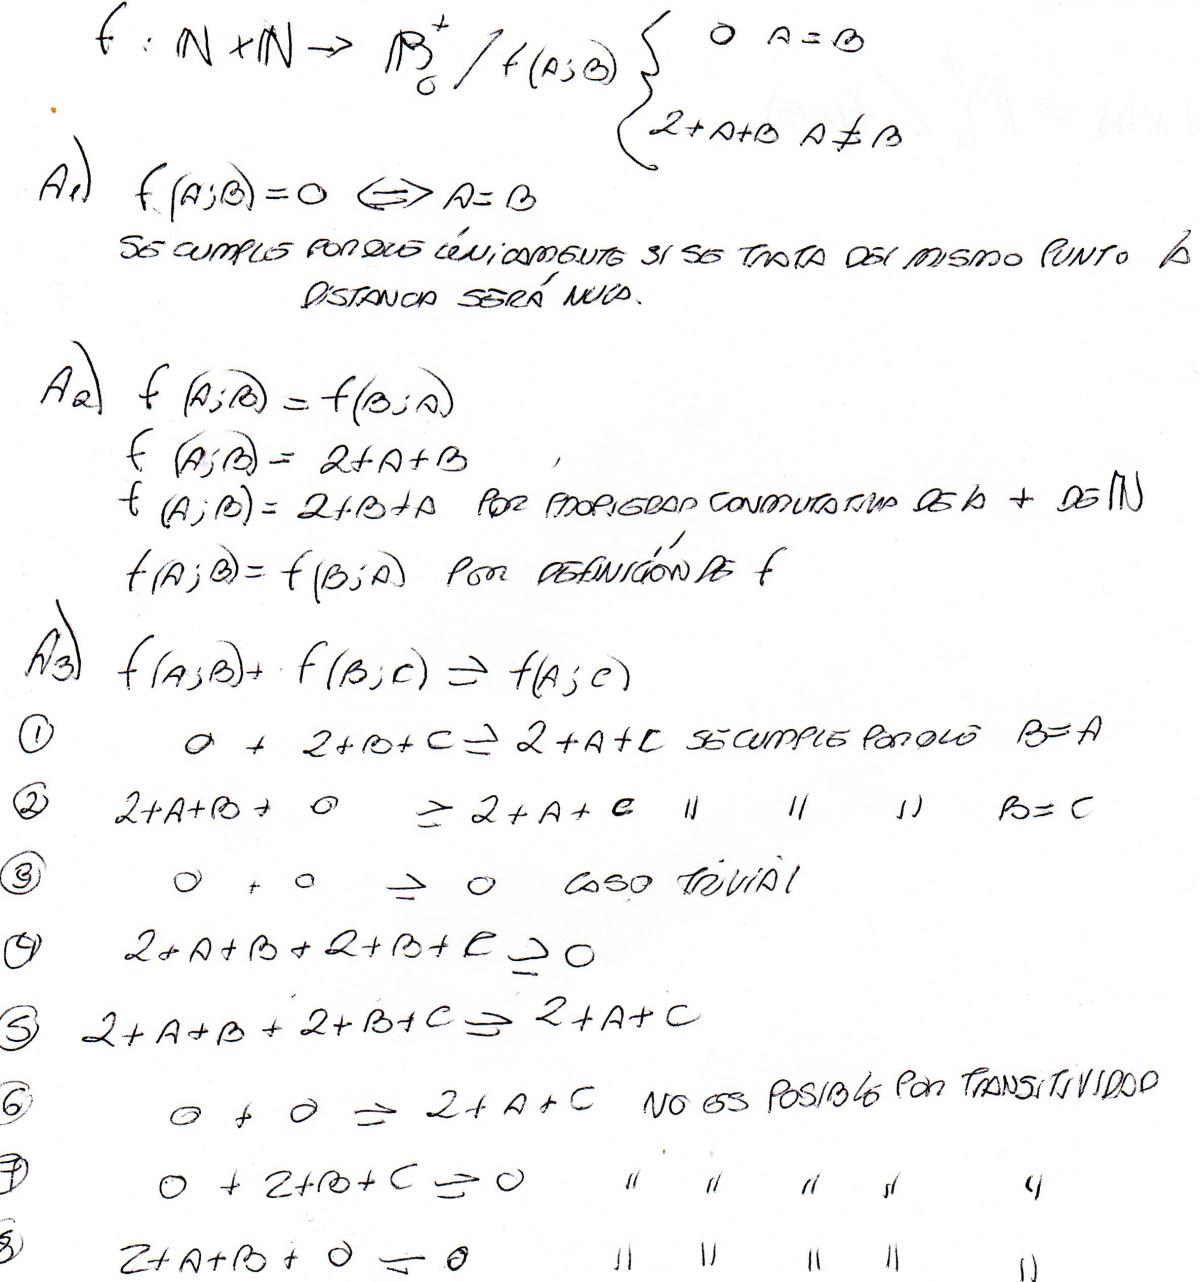 f : ℕ × ℕ → ℝ₀⁺ / f(A;B) { 0 A = B
2+A+B A ≠ B
A₁) f(A;B) = 0 ⟺ A = B
SE CUMPLE PORQUE ÚNICAMENTE SI SE TRATA DEL MISMO PUNTO LA
DISTANCIA SERÁ NULA.
A₂) f(A;B) = f(B;A)
f(A;B) = 2+A+B
f(A;B) = 2+B+A POR PROPIEDAD CONMUTATIVA DE LA + DE ℕ
f(A;B) = f(B;A) POR DEFINICIÓN DE f
A₃) f(A;B) + f(B;C) ≥ f(A;C)
① 0 + 2+B+C ≥ 2+A+C SE CUMPLE PORQUE B=A
② 2+A+B + 0 ≥ 2+A+C " " " B=C
③ 0 + 0 ≥ 0 CASO TRIVIAL
④ 2+A+B+2+B+C ≥ 0
⑤ 2+A+B+2+B+C ≥ 2+A+C
⑥ 0 + 0 ≥ 2+A+C NO ES POSIBLE POR TRANSITIVIDAD
⑦ 0 + 2+B+C ≥ 0 " " " " "
⑧ 2+A+B + 0 ≥ 0 " " " " "